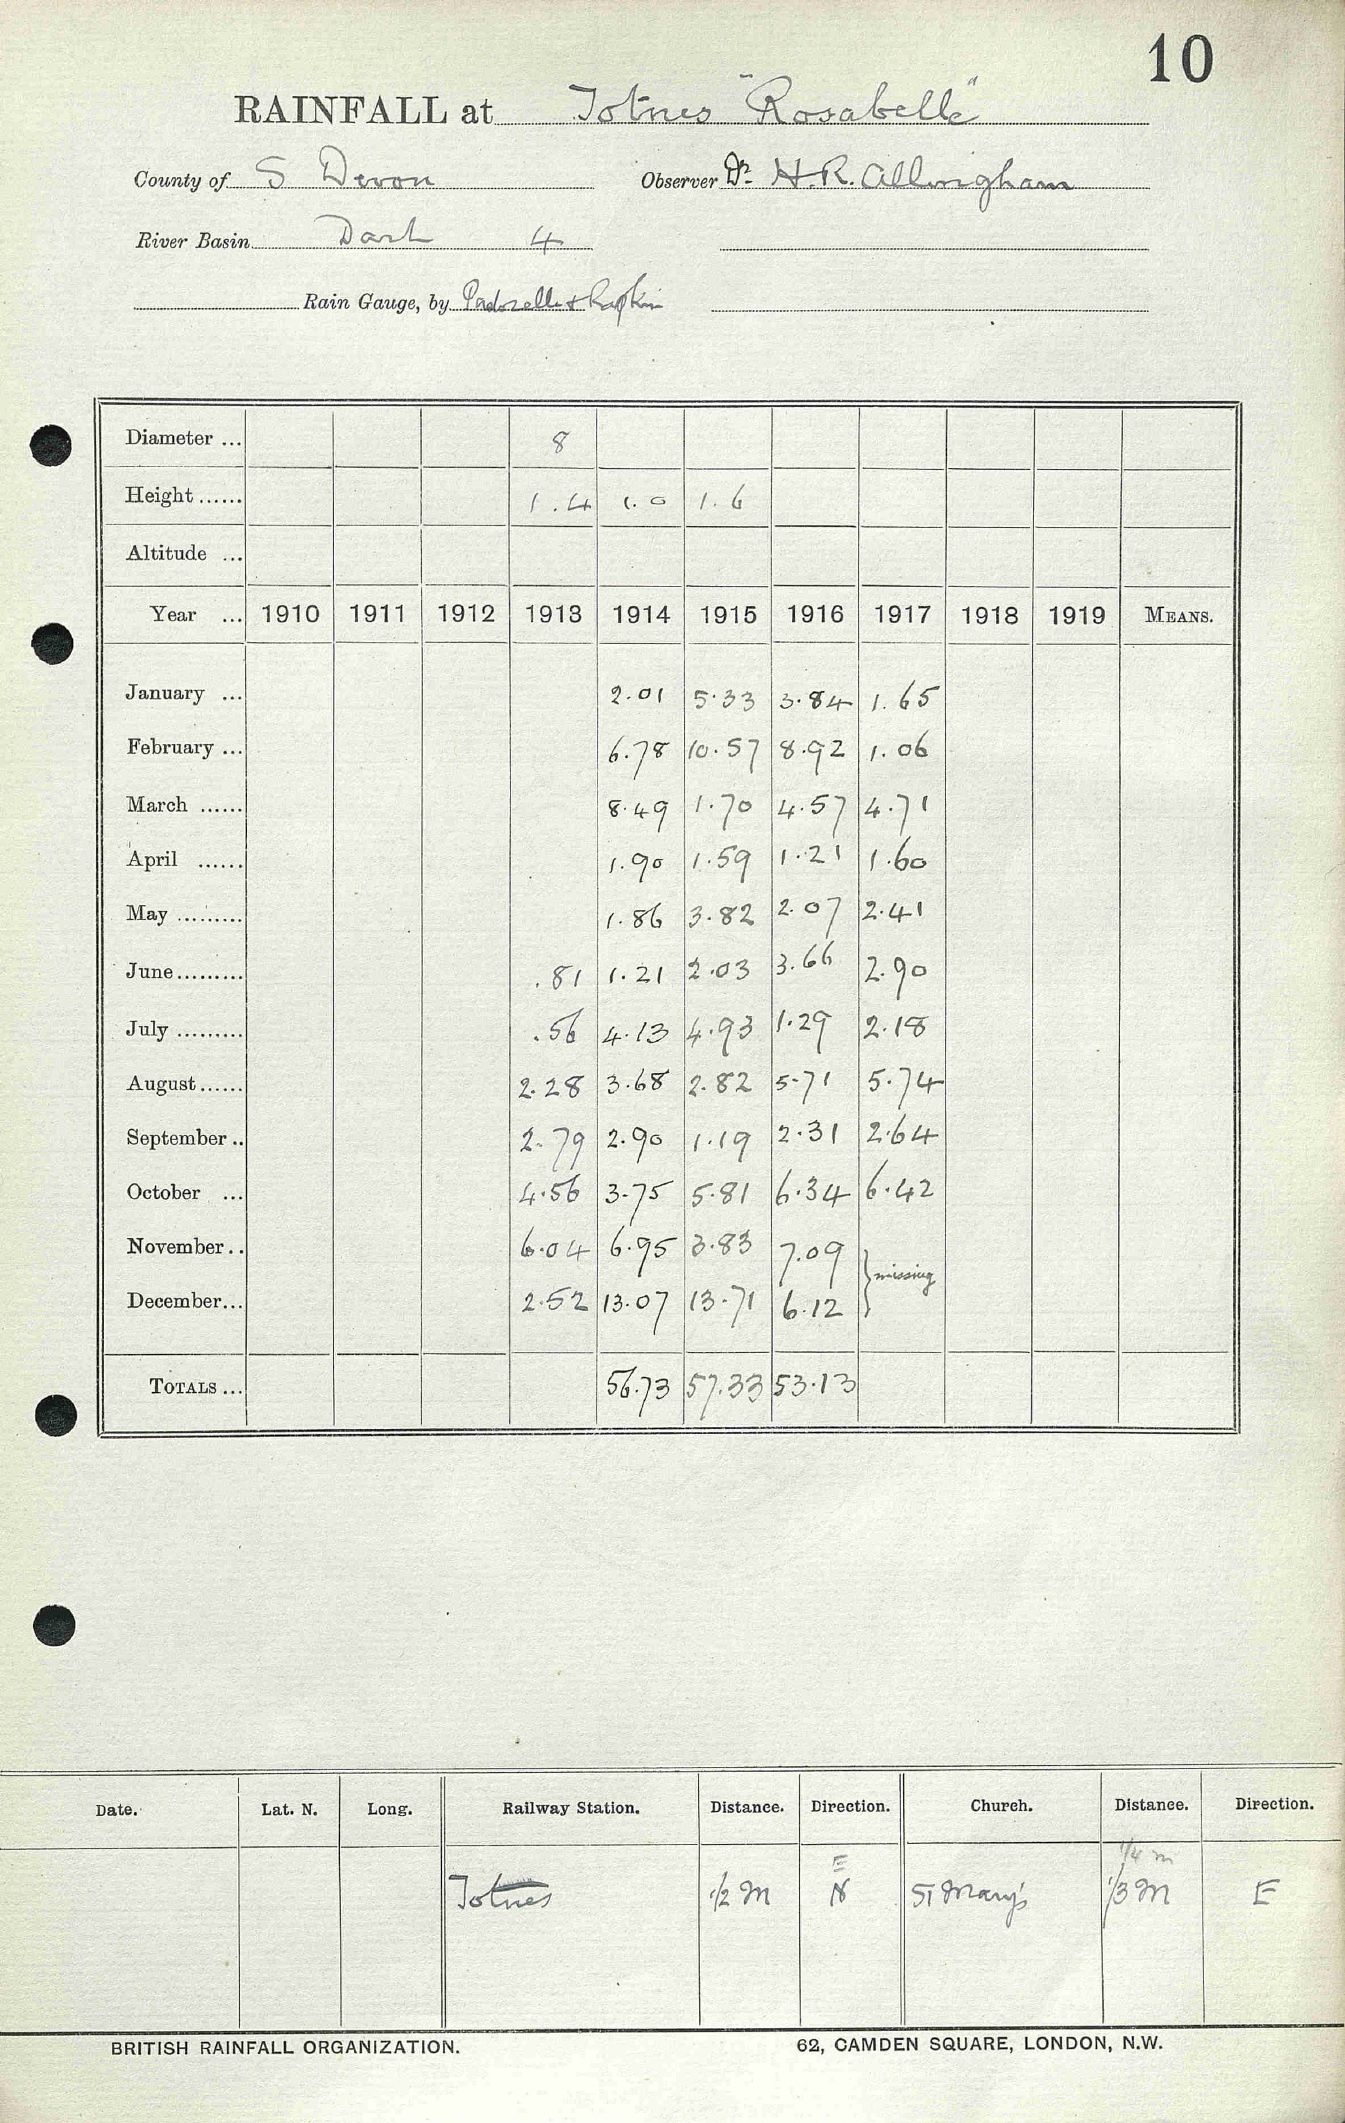 10
RAINFALL at Totnes "Rosabelle"
County of S Devon Observer Dr H.R. Allingham
River Basin Dart 4
Rain Gauge, by &
Diameter ... 8
Height ...... 1.4 1.0 1.6
Altitude ...
Year ... 1910 1911 1912 1913 1914 1915 1916 1917 1918 1919 MEANS.
January ... 2.01 5.33 3.84 1.65
February ... 6.78 10.57 8.92 1.06
March ...... 8.49 1.70 4.57 4.71
April ...... 1.90 1.59 1.21 1.60
May ......... 1.86 3.82 2.07 2.41
June......... .81 1.21 2.03 3.66 2.90
July ......... .56 4.13 4.93 1.29 2.18
August...... 2.28 3.68 2.82 5.71 5.74
September .. 2.79 2.90 1.19 2.31 2.64
October ... 4.56 3.75 5.81 6.34 6.42
November .. 6.04 6.95 3.83 7.09 } missing
December... 2.52 13.07 13.71 6.12
TOTALS ... 56.73 57.33 53.13
Date. Lat. N. Long. Railway Station. Distance. Direction. Church. Distance. Direction.
E 1/4 m
Totnes 1/2 M N St Mary's 1/3 M E
BRITISH RAINFALL ORGANIZATION. 62, CAMDEN SQUARE, LONDON, N.W.